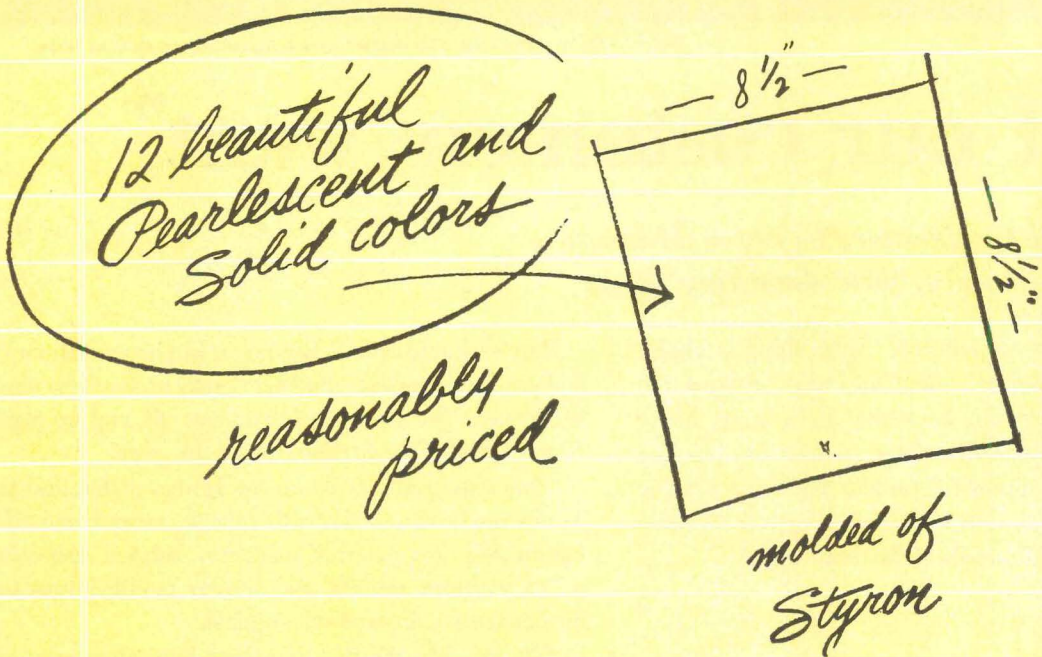 12 beautiful
Pearlescent and
Solid colors
— 8 1/2" —
— 8 1/2" —
reasonably
priced
molded of
Styron